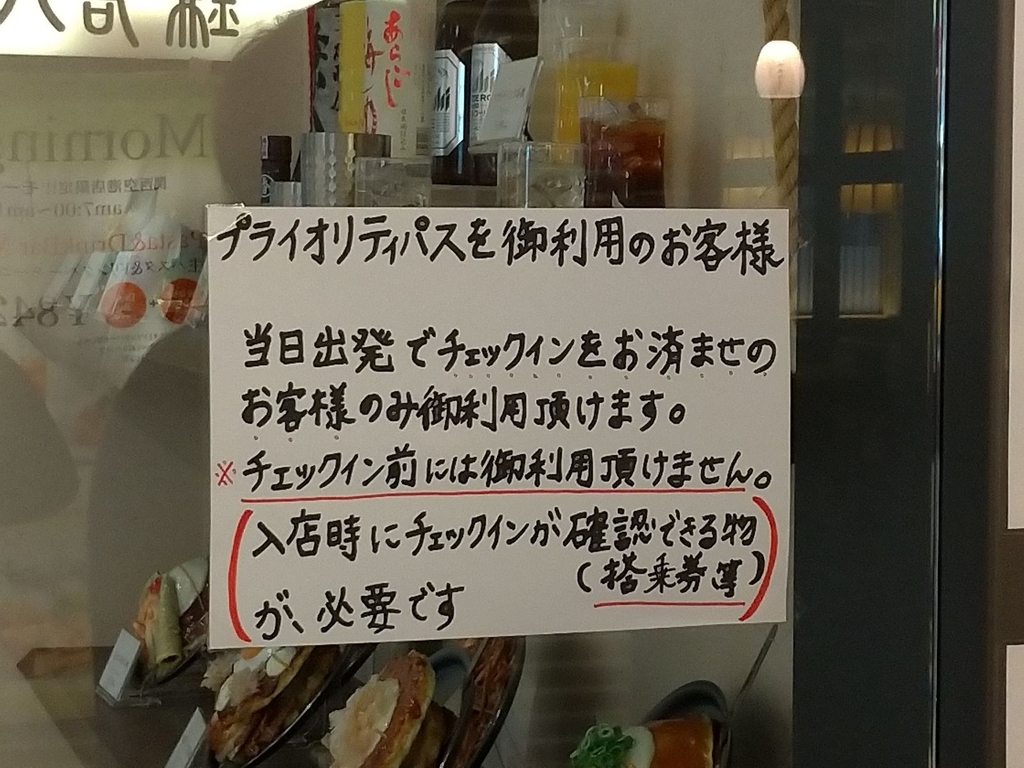 あらごし
梅酒
Asahi
ZERO
Morning
関西空港店限定
am7:00~am
Pasta&DrinkBar
¥842
プライオリティパスを御利用のお客様
当日出発でチェックインをお済ませの
お客様のみ御利用頂けます。
※チェックイン前には御利用頂けません。
(入店時にチェックインが確認できる物
(搭乗券等)
が、必要です)